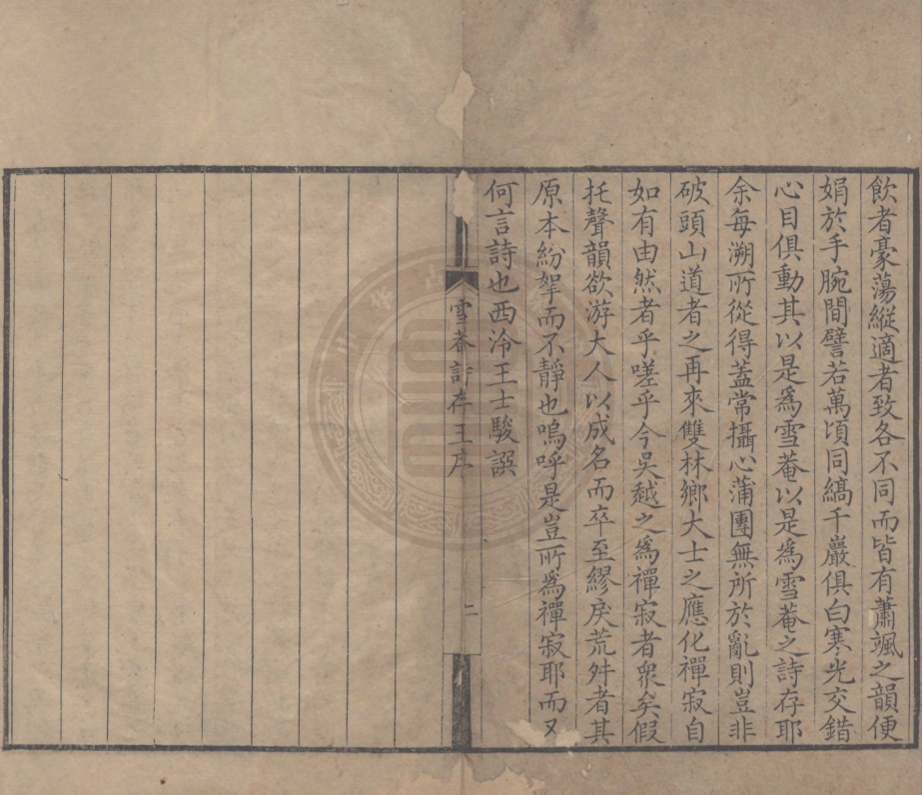 飲者豪蕩縱適者致各不同而皆有蕭颯之韻便
娟於手腕間譬若萬頃同縞千巖俱白寒光交錯
心目俱動其以是爲雪菴以是爲雪菴之詩存耶
余每溯所從得蓋常攝心蒲團無所於亂則豈非
破頭山道者之再來雙林鄉大士之應化禪寂自
如有由然者乎嗟乎今吳越之爲禪寂者衆矣假
托聲韻欲游大人以成名而卒至繆戾荒舛者其
原本紛挐而不靜也嗚呼是豈所爲禪寂耶而又
何言詩也西泠王士駿譔
雪菴詩存王序
二